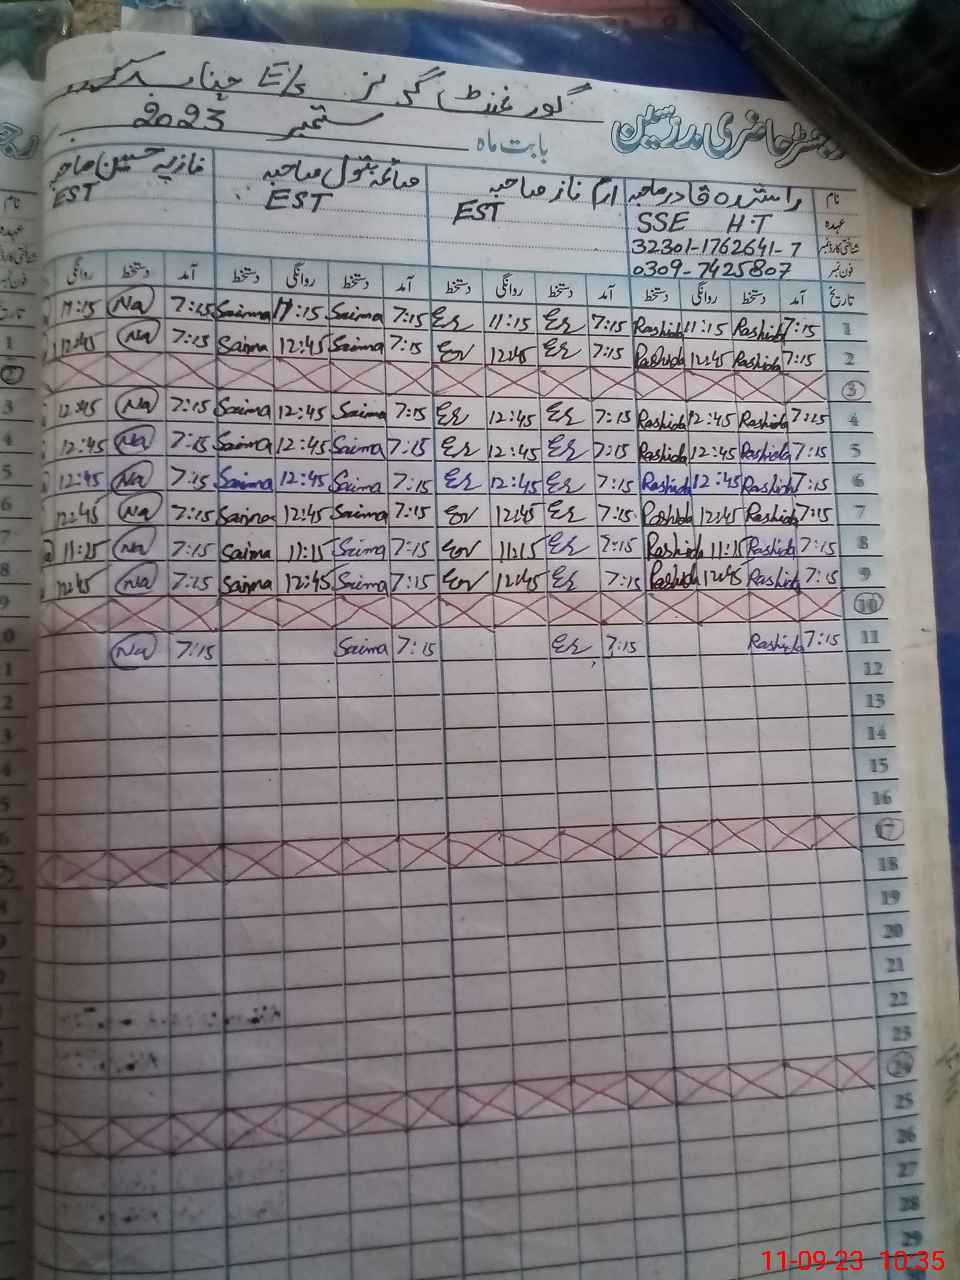 گورنمنٹ گرلز E/S
رجسٹر حاضری مدرسین
بابت ماہ ستمبر 2023
نام راشدہ قادر صاحبہ ارم ناز صاحبہ صائمہ بتول صاحبہ نازیہ حسین صاحبہ
عہدہ SSE H.T EST EST EST
شناختی کارڈ نمبر 32301-1762641-7
فون نمبر 0309-7425807
تاریخ آمد دستخط روانگی دستخط آمد دستخط روانگی دستخط آمد دستخط روانگی دستخط آمد دستخط روانگی
1 7:15 Rashida 11:15 Rashida 7:15 Er 11:15 Er 7:15 Saima 11:15 Saima 7:15 Na 11:15
2 7:15 Rashida 12:45 Rashida 7:15 Er 12:45 Er 7:15 Saima 12:45 Saima 7:15 Na 12:45
3
4 7:15 Rashida 12:45 Rashida 7:15 Er 12:45 Er 7:15 Saima 12:45 Saima 7:15 Na 12:45
5 7:15 Rashida 12:45 Rashida 7:15 Er 12:45 Er 7:15 Saima 12:45 Saima 7:15 Na 12:45
6 7:15 Rashida 12:45 Rashida 7:15 Er 12:45 Er 7:15 Saima 12:45 Saima 7:15 Na 12:45
7 7:15 Rashida 12:45 Rashida 7:15 Er 12:45 Er 7:15 Saima 12:45 Saima 7:15 Na 12:45
8 7:15 Rashida 11:15 Rashida 7:15 Er 11:15 Er 7:15 Saima 11:15 Saima 7:15 Na 11:15
9 7:15 Rashida 12:45 Rashida 7:15 Er 12:45 Er 7:15 Saima 12:45 Saima 7:15 Na 12:45
10
11 7:15 Rashida 7:15 Er 7:15 Saima 7:15 Na
12
13
14
15
16
17
18
19
20
21
22
23
24
25
26
27
28
29
11-09-23 10:35